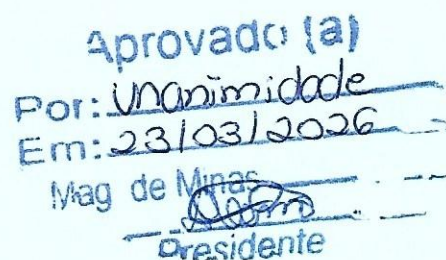 Aprovado (a)
Por: unanimidade
Em: 23/03/2026
Mag de Minas
Presidente